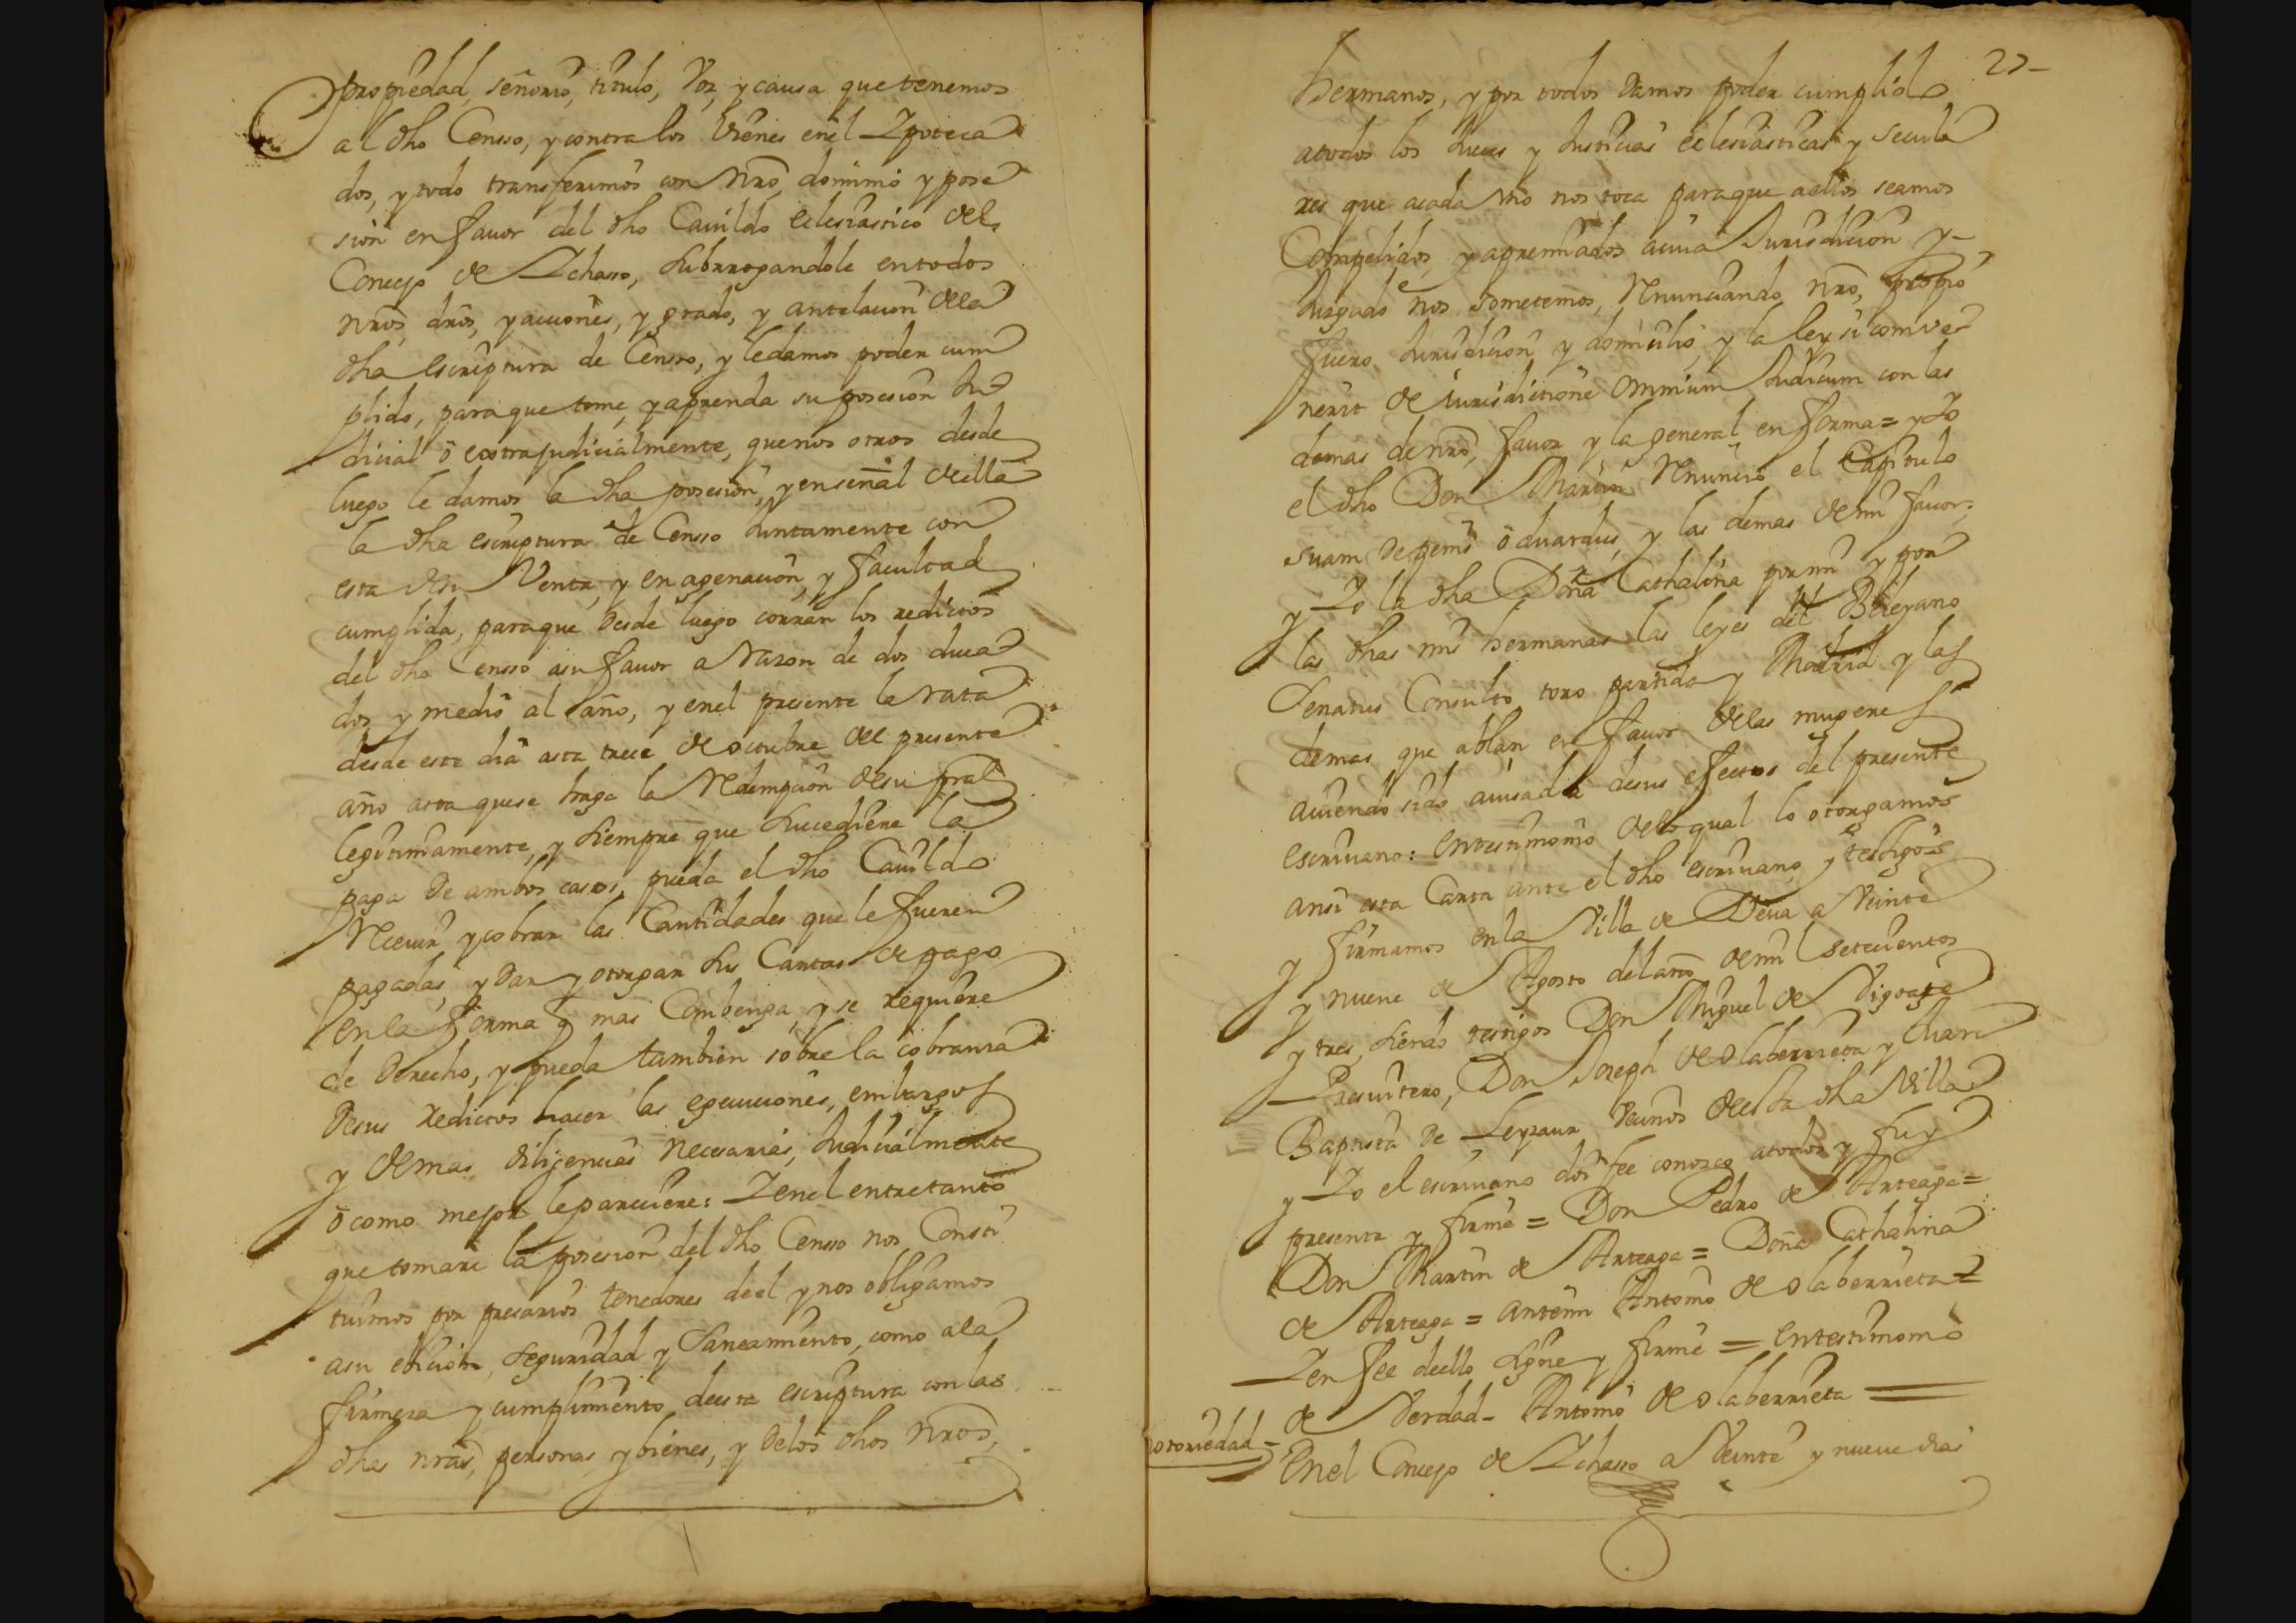 propiedad, señorio, titulo, voz, y causa que tenemos
al dho Censso, y contra los vienes enel Ypoteca
dos, y todo transferimos con nro, dominio y pose
sion en favor del dho Cavildo eclesiastico del
Concejo de Ychasso, subrrogandole entodos
nros, dros, y acciones, y grado, y antelacion dela
dha escriptura de Censso, y ledamos poder cum
plido, paraque tome, y aprenda su posesion Ju
dicial ò extrajudicialmente, quenos otros desde
luego le damos la dha posesion, y enseñal deella
la dha escriptura de Censso Juntamente con
esta desu Venta, y enagenacion, y facultad
cumplida, paraque desde luego corran los redictos
del dho Censso asu favor a razon de dos duca
dos y medio al año, y enel presente la rata
desde este dia asta trece de octubre del presente
año asta quese haga la Redempcion desu pral
legitimamente, y siempre que sucediere la
paga de ambos casos, pueda el dho Cavildo
Recivir y cobrar las Cantidades que le fueren
pagadas, y dar y otorgar sus Cartas de pago
enla forma q mas Combenga, y se requiere
de derecho, y pueda tambien sobre la cobranza
desus redictos hacer las egecuciones, embargos
y demas diligencias necesarias, Judicialmente
ò como mejor lepareciere: Yenel entretanto
que tomare la posesion del dho Censso nos Consti
tuimos por precarios tenedores deel y nos obligamos
asu ebiccion, seguridad y saneamiento, como ala
firmeza y cumplimiento deesta escriptura con las
dhas nras, personas y bienes, y delos dhos nros,
27
hermanos, y por todos damos poder cumplido
atodos los Jueces y Justicias eclesiasticas y secula
res que acada vno nos toca paraque aello seamos
Compelidos, y apremiados acuia Jurisdicion y
Juzgado nos sometemos, Renunciando nro, propio
fuero Jurisdicion y domicilio y la ley si comve
nerit de iurisdictione omnium Judicum con las
demas de nro, favor y la general en forma = y Yo
el dho Don Martin Renuncio el Capitulo
suam de penis oduardus, y las demas de mi favor;
y Yo la dha Doña Cathalina por mi y por
las dhas mis hermanas las leyes del Beleyano
Senatus Consulto toro partida y Madrid y las
demas que ablan en favor delas mugeres
aviendo sido avisada desus efectos del presente
escrivano: entestimonio delo qual lo otorgamos
ansi esta Carta ante el dho escrivano, y testigos
y firmamos enla Villa de Deva a Veinte
y nueve de Agosto del año de mil setecientos
y tres, siendo testigos Don Miguel de
Presvitero, Don Joseph de olaberrieta y Juan
Baptista de Leyzaur vecinos deesta dha Villa
y Yo el escrivano doi fee conozco atodos y fuy
presente y firmé = Don Pedro de Arteaga =
Don Martin de Arteaga = Doña Cathalina
de Arteaga = antemi Antonio de olaberrieta =
Yen fee deello signe y firmé = entestimonio
de Verdad - Antonio de olaberrieta
otoriedad -
Enel Concejo de Ychasso a Veinte y nueve dias